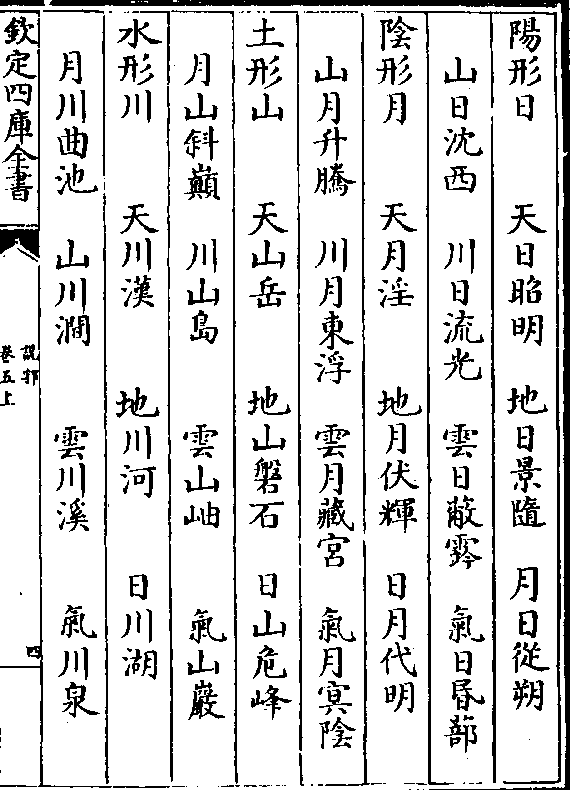 陽形日　天日昭明　地日景隨　月日從朔
山日沈西　川日流光　雲日蔽雺　氣日昬蔀
陰形月　天月淫　地月伏輝　日月代明
山月升騰　川月東浮　雲月藏宮　氣月冥陰
土形山　天山岳　地山磐石　日山危峰
月山斜巔　川山島　雲山岫　氣山巖
水形川　天川漢　地川河　日川湖
月川曲池　山川澗　雲川溪　氣川泉
欽定四庫全書
說郛
卷五上
四